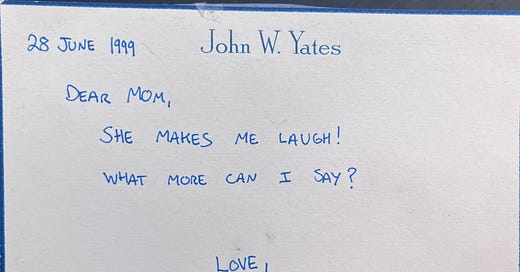 28 JUNE 1999
John W. Yates
DEAR MOM,
SHE MAKES ME LAUGH!
WHAT MORE CAN I SAY?
LOVE,